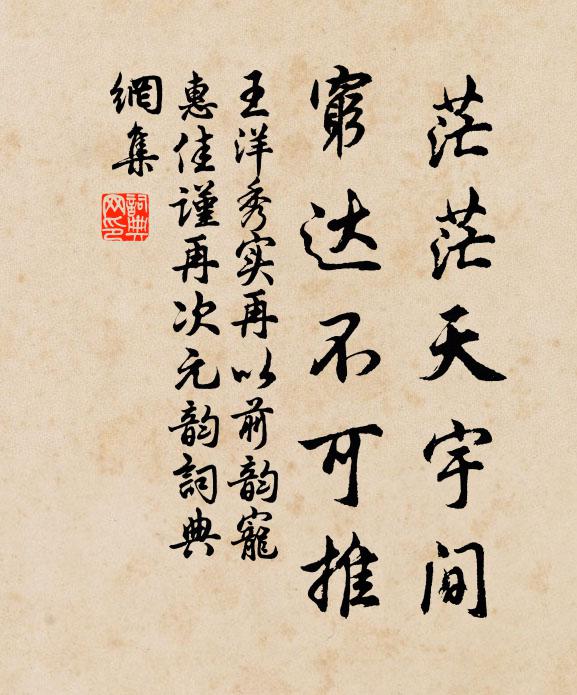 茫茫天宇间
穷达不可推
王洋秀实再以前韵宠
惠佳谨再次元韵词典
網集
詞典網印